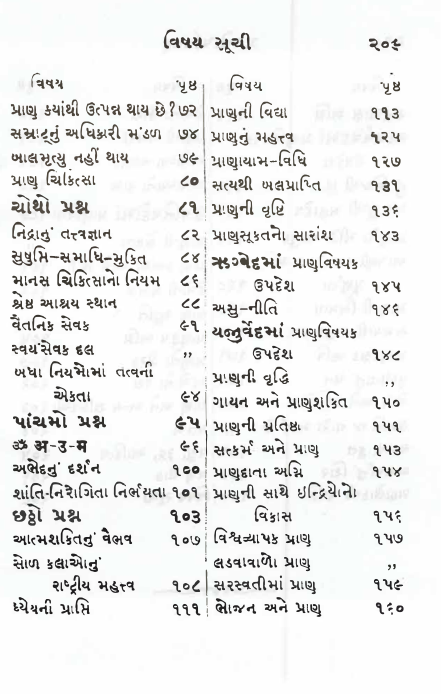 વિષય સૂચી ૨૦૯
વિષય પૃષ્ઠ
પ્રાણુ ક્યાંથી ઉત્પન્ન થાય છે? ૭૨
સમ્રાટ્નું અધિકારી મંડળ ૭૪
બાલમૃત્યુ નહીં થાય ૭૯
પ્રાણુ ચિકિત્સા ૮૦
ચોથો પ્રશ્ન ૮૧
નિદ્રાનું તત્ત્વજ્ઞાન ૮૨
સુષુપ્તિ-સમાધિ-મુકિત ૮૪
માનસ ચિકિત્સાનો નિયમ ૮૬
શ્રેષ્ઠ આશ્રય સ્થાન ૮૮
વૈતનિક સેવક ૯૧
સ્વયંસેવક દલ ,,
બધા નિયમોમાં તત્વની
એકતા ૯૪
પાંચમો પ્રશ્ન ૯૫
ૐ અ-ઉ-મ ૯૬
અભેદનું દર્શન ૧૦૦
શાંતિ-નિરોગિતા નિર્ભયતા ૧૦૧
છઠ્ઠો પ્રશ્ન ૧૦૩
આત્મશકિતનું વૈભવ ૧૦૭
સોળ કલાઓનું
રાષ્ટ્રીય મહત્ત્વ ૧૦૮
ધ્યેયની પ્રાપ્તિ ૧૧૧
વિષય પૃષ્ઠ
પ્રાણુની વિદ્યા ૧૧૩
પ્રાણુનું મહત્ત્વ ૧૨૫
પ્રાણાયામ-વિધિ ૧૨૭
સત્યથી બલપ્રાપ્તિ ૧૩૧
પ્રાણુની વૃષ્ટિ ૧૩૬
પ્રાણુસૂકતનો સારાંશ ૧૪૩
ઋગ્વેદમાં પ્રાણુવિષયક
ઉપદેશ ૧૪૫
અસુ-નીતિ ૧૪૬
યજુર્વેદમાં પ્રાણુવિષયક
ઉપદેશ ૧૪૮
પ્રાણુની વૃદ્ધિ ,,
ગાયન અને પ્રાણુશકિત ૧૫૦
પ્રાણુની પ્રતિષ્ઠા ૧૫૧
સત્કર્મ અને પ્રાણુ ૧૫૩
પ્રાણુદાતા અગ્નિ ૧૫૪
પ્રાણુની સાથે ઇન્દ્રિયોનો
વિકાસ ૧૫૬
વિશ્વવ્યાપક પ્રાણુ ૧૫૭
લડવાવાળો પ્રાણુ ,,
સરસ્વતીમાં પ્રાણુ ૧૫૯
ભોજન અને પ્રાણુ ૧૬૦